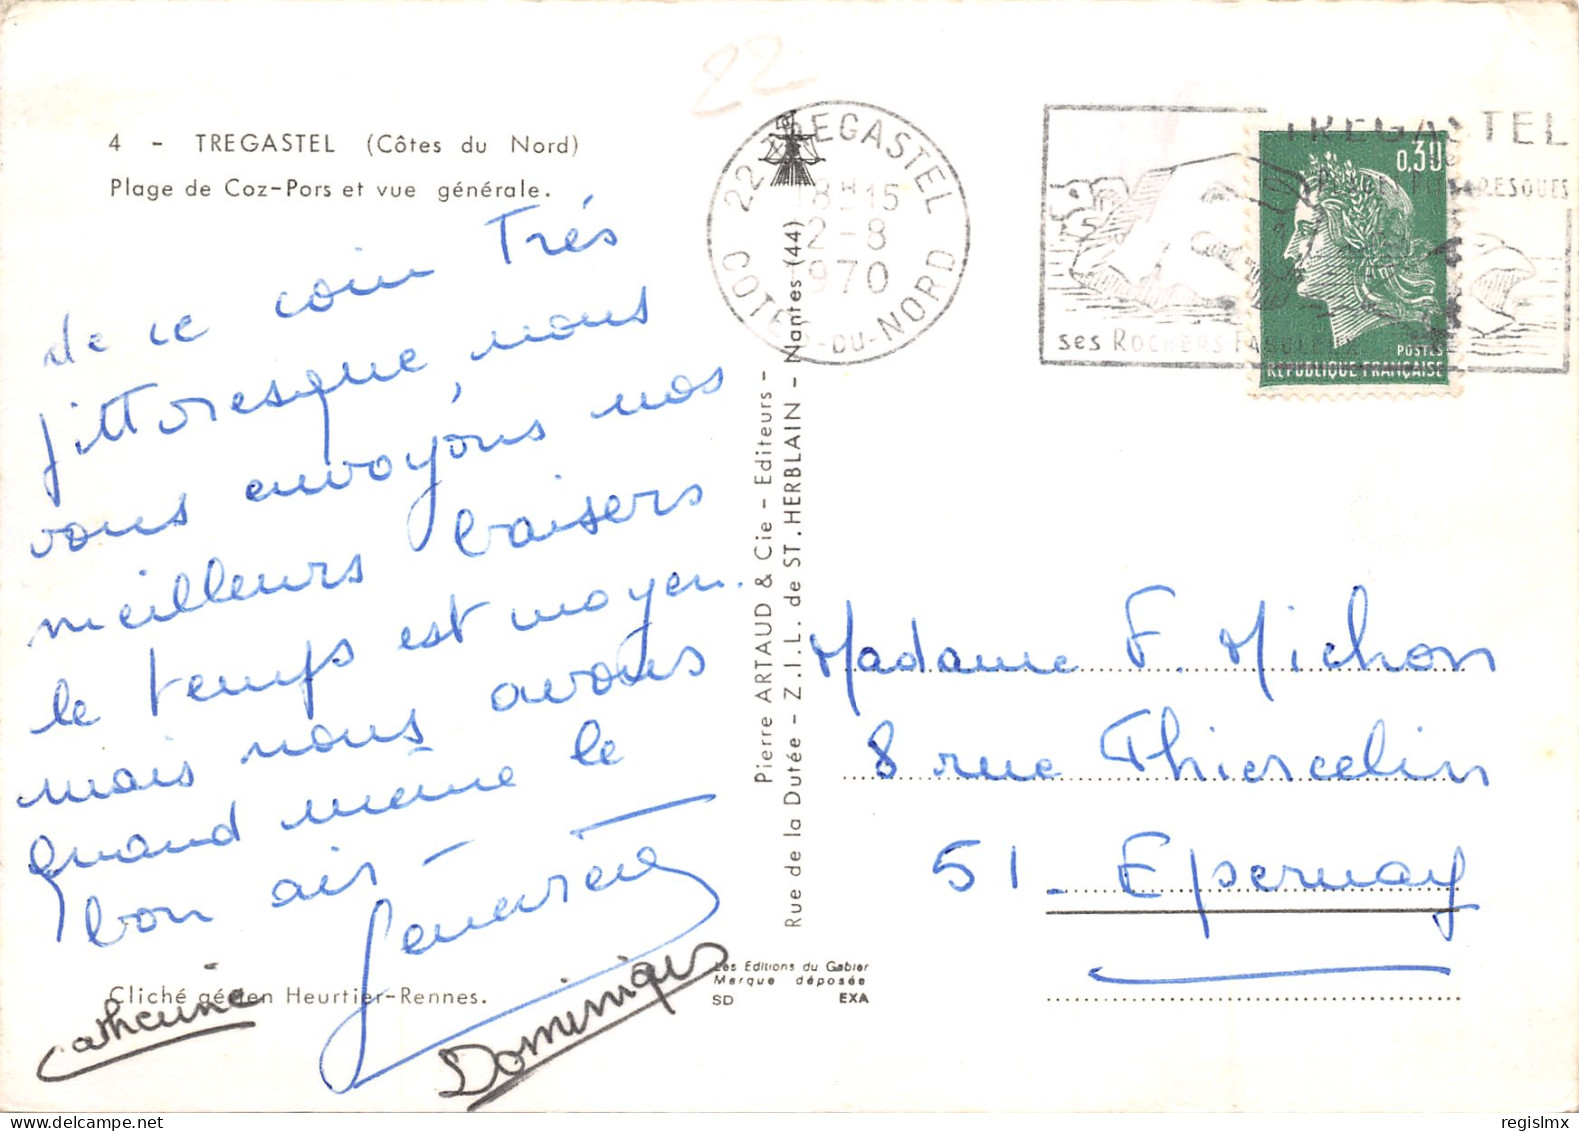 22
4 - TREGASTEL (Côtes du Nord)
Plage de Coz-Pors et vue générale.
de ce coin Trés
pittoresque, nous
vous envoyons nos
meilleurs baisers
le temps est moyen.
mais nous avons
quand même le
bon air -
Catherine
Dominique
Cliché aérien Heurtier-Rennes.
Pierre ARTAUD & Cie - Editeurs -
Rue de la Dutée - Z.I.L. de ST. HERBLAIN - Nantes (44)
Les Editions du Gabier
Marque déposée
SD EXA
22 TREGASTEL
18H15
12-8
1970
COTES-DU-NORD
TREGASTEL
ses ROCHERS
0,30
POSTES
REPUBLIQUE FRANÇAISE
Madame F. Michon
8 rue Thiercelin
51 - Epernay
regislmx